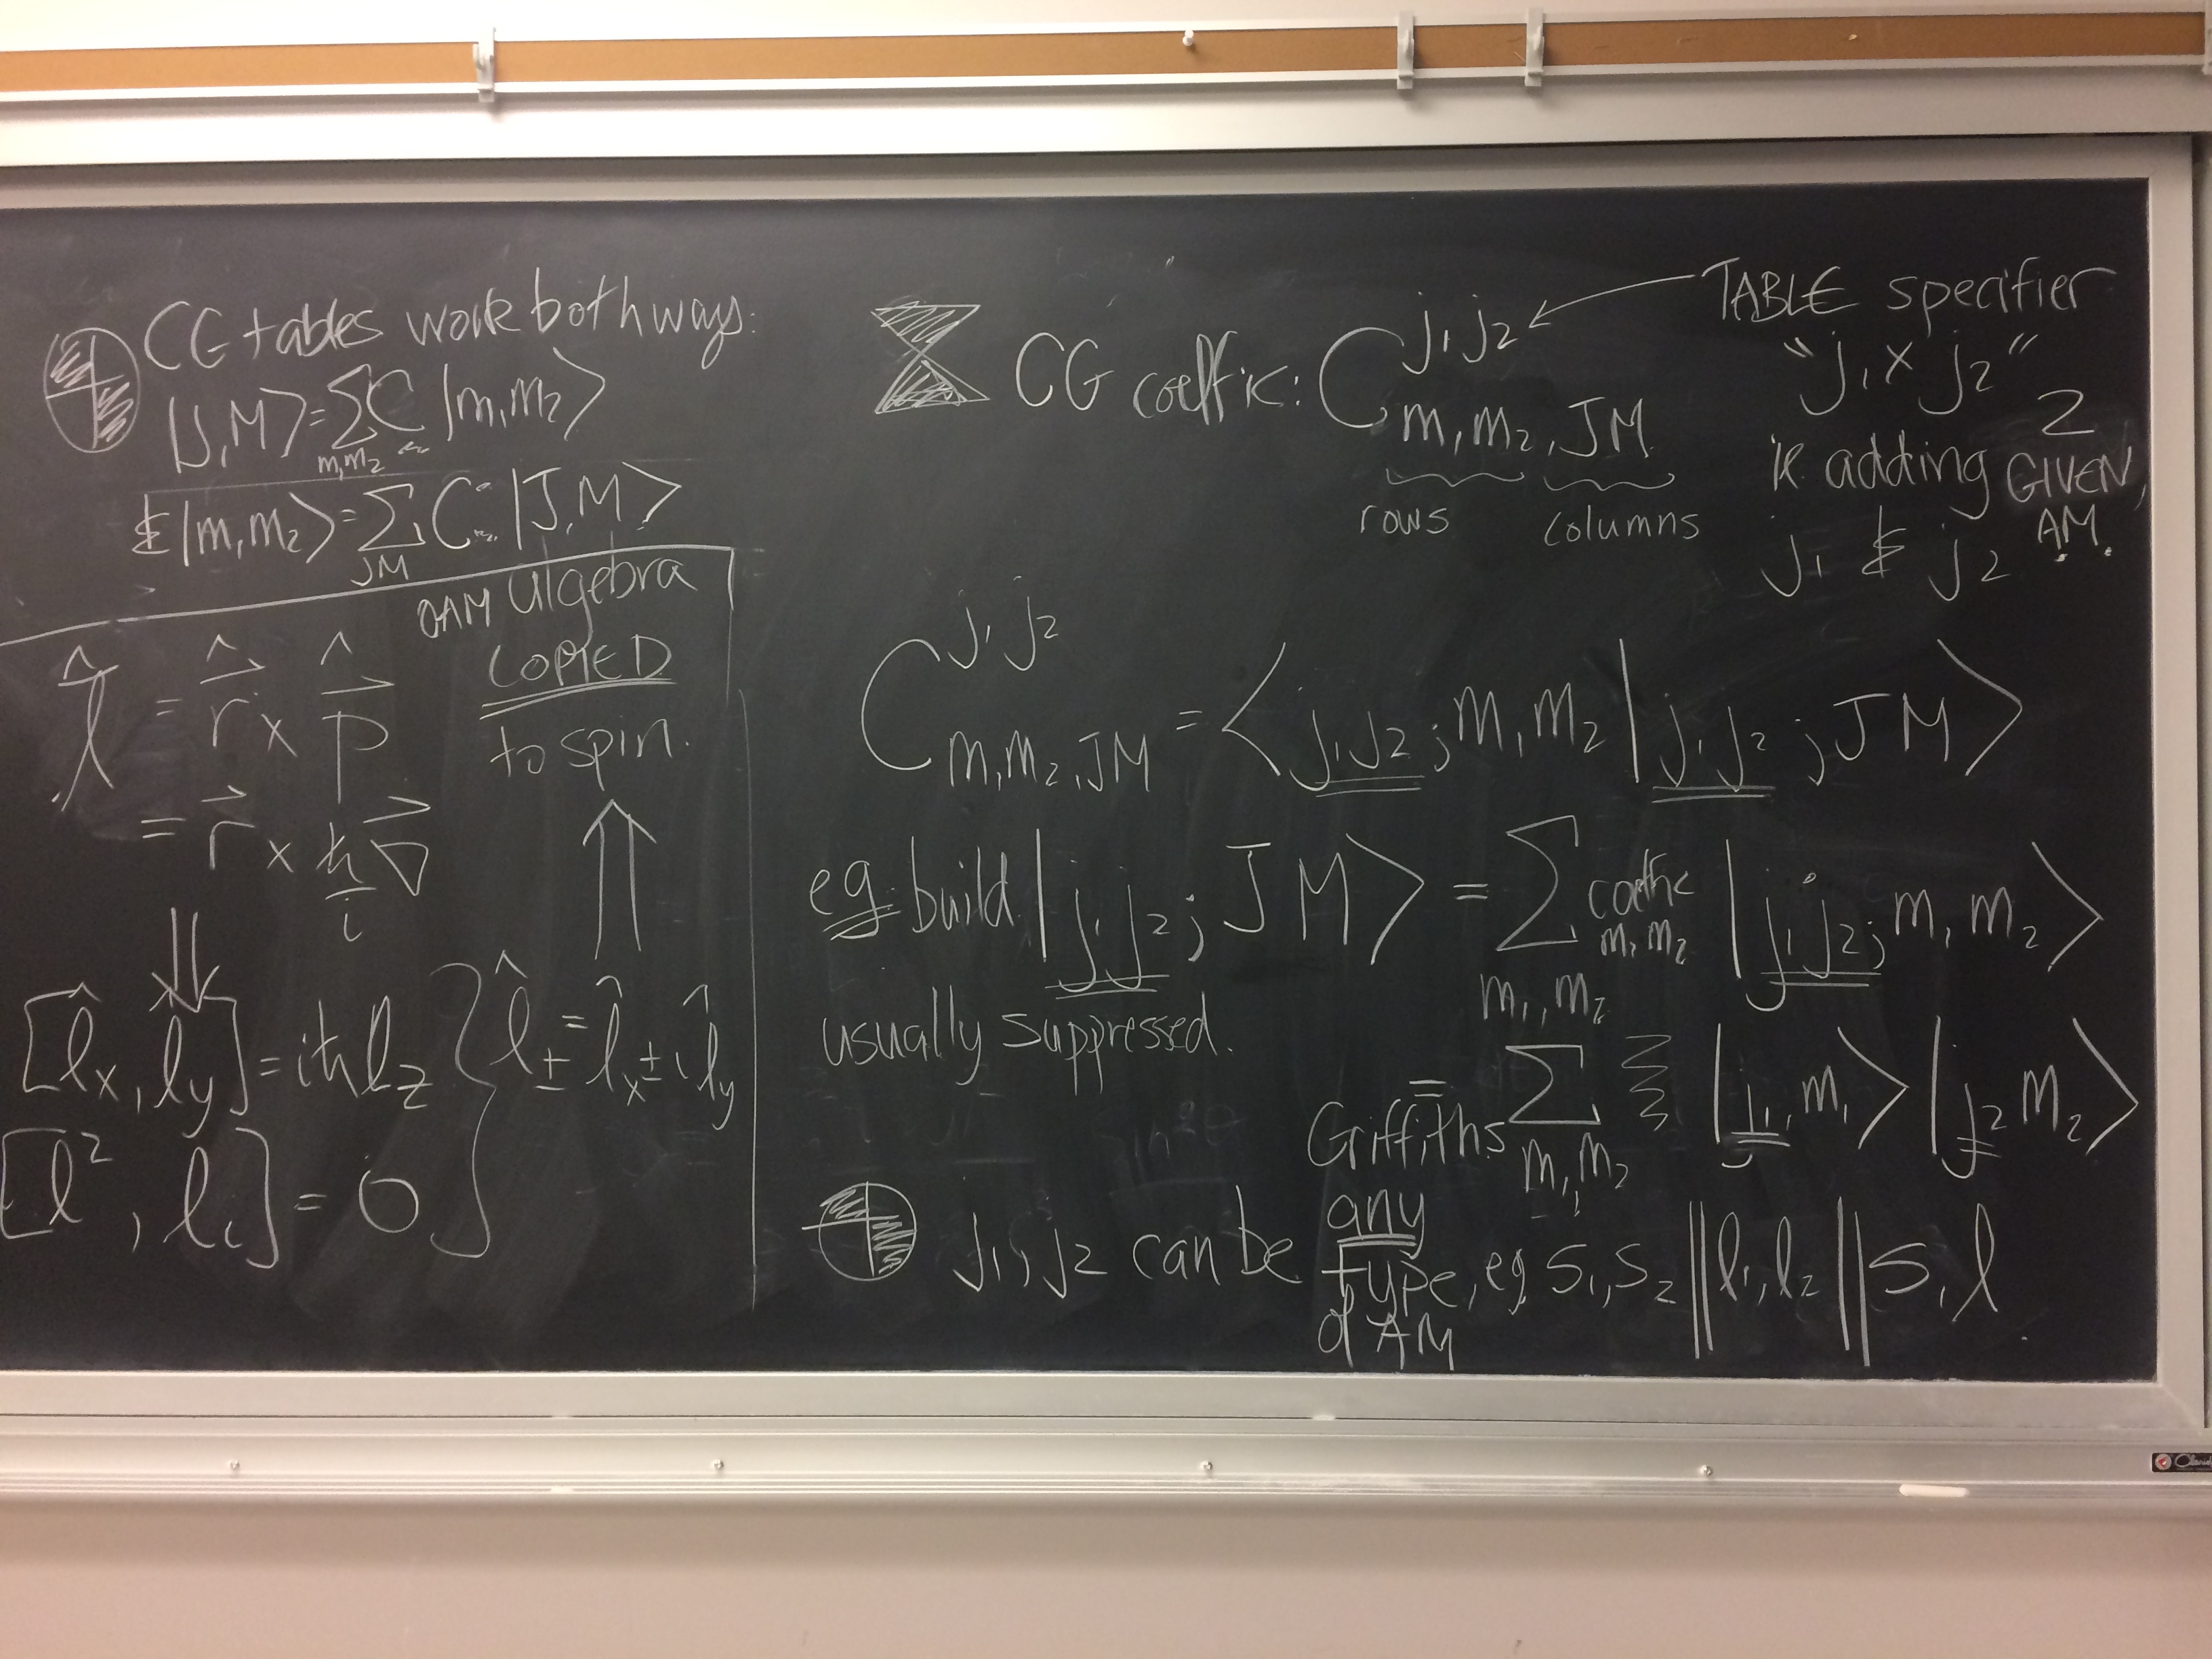 CG tables work both ways:
|J,M> = Σ C |m₁m₂>
m₁m₂
& |m₁m₂> = Σ C |J,M>
JM
OAM algebra
COPIED
to spin.
l̂ = r̂⃗ x p̂⃗
= r⃗ x ħ/i ∇⃗
[l̂x, l̂y] = iħlz } l̂± = l̂x ± il̂y
[l², li] = 0
CG coeffic: C^{j₁j₂}_{m₁m₂,JM}
rows columns
TABLE specifier
"j₁ x j₂"
ie adding 2 GIVEN AM.
j₁ & j₂
C^{j₁j₂}_{m₁m₂,JM} = <j₁j₂;m₁m₂|j₁j₂;JM>
eg build |j₁j₂;JM> = Σ coeffic m₁m₂ |j₁j₂;m₁m₂>
m₁,m₂
usually suppressed.
= Σ |j₁,m₁>|j₂m₂>
Griffiths m₁,m₂
j₁,j₂ can be any type, eg s₁,s₂ || l₁,l₂ || s,l
of AM